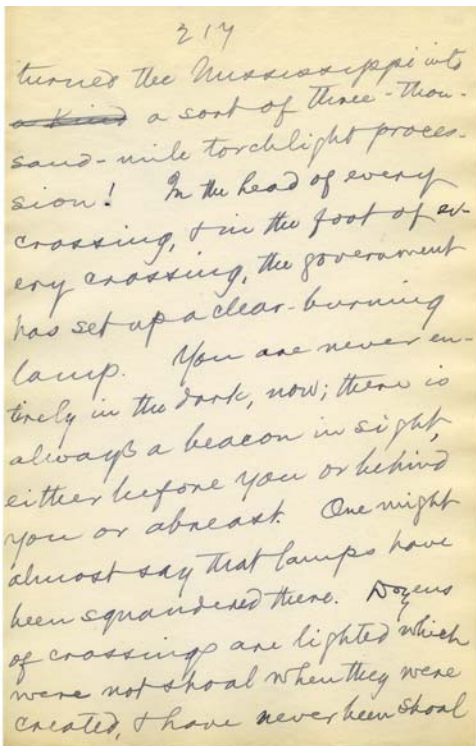 217
turned the Mississippi into
a kind a sort of three-thou-
sand-mile torchlight proces-
sion! In the head of every
crossing, & in the foot of ev-
ery crossing, the government
has set up a clear-burning
lamp. You are never en-
tirely in the dark, now; there is
always a beacon in sight,
either before you or behind
you or abreast. One might
almost say that lamps have
been squandered there. Dozens
of crossings are lighted which
were not shoal when they were
created, & have never been shoal